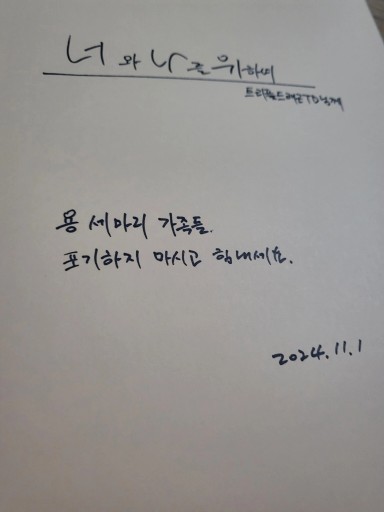 너와 나를 위하여
트리플드래곤TD님께
용 세마리 가족들.
포기하지 마시고 힘내세요.
2024.11.1